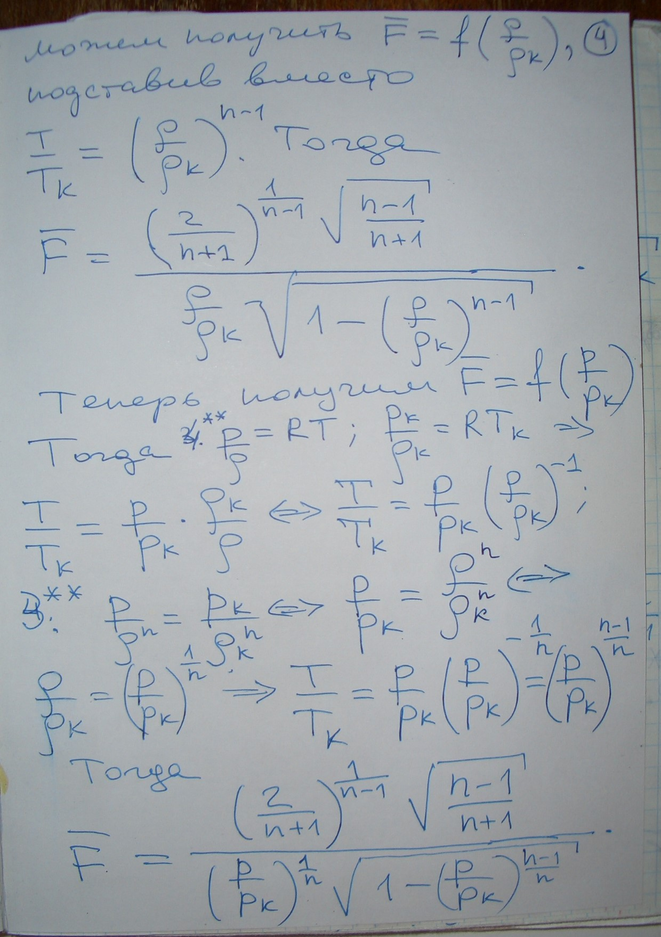 можем получить F̅ = f(ρ/ρк), ④
подставив вместо
T/Tк = (ρ/ρк)^(n-1). Тогда
F̅ = ((2/(n+1))^(1/(n-1)) √((n-1)/(n+1))) / (ρ/ρк √(1-(ρ/ρк)^(n-1))).
Теперь получим F̅ = f(p/pк)
Тогда 4.** p/ρ = RT; pк/ρк = RTк ⇒
T/Tк = p/pк · ρк/ρ ⇔ T/Tк = p/pк (ρ/ρк)^(-1);
3.** p/ρ^n = pк/ρк^n ⇔ p/pк = ρ^n/ρк^n ⇔
ρ/ρк = (p/pк)^(1/n). ⇒ T/Tк = p/pк (p/pк)^(-1/n) = (p/pк)^((n-1)/n)
Тогда
F̅ = ((2/(n+1))^(1/(n-1)) √((n-1)/(n+1))) / ((p/pк)^(1/n) √(1-(p/pк)^((n-1)/n))).